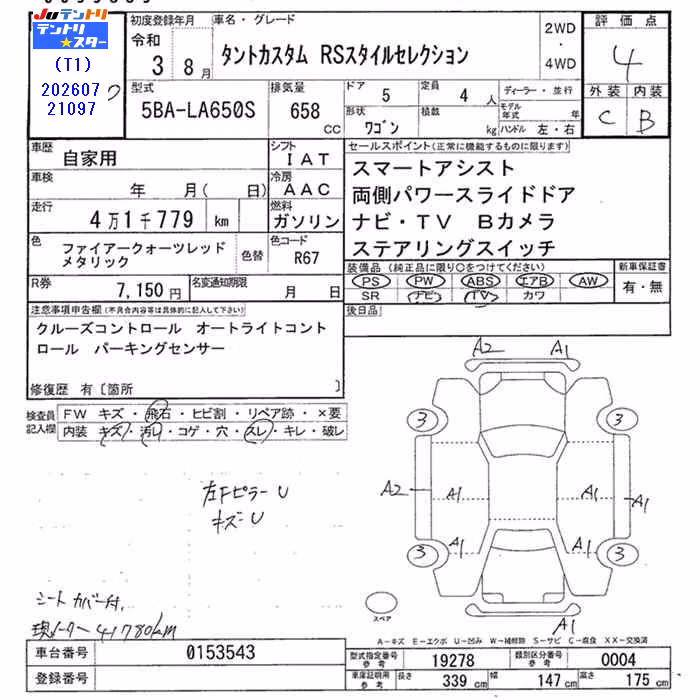 JUテントリ
テントリ★スター
(T1)
202607
21097
初度登録年月
令和
3 8月
車名・グレード
タントカスタム RSスタイルセレクション
2WD
・
4WD
評価点
4
外装 内装
C B
型式
5BA-LA650S
排気量
658
CC
ドア
5
定員
4 人
形状
ワゴン
積載
kg
ディーラー・並行
モデル年式 年
ハンドル 左・右
車歴
自家用
シフト
IAT
車検
年 月( 日)
冷房
AAC
走行
4万1千779 km
燃料
ガソリン
色
ファイアークォーツレッド
メタリック
色替
色コード
R67
R券
7,150円
名変通知期限
月 日
セールスポイント(正常に機能するものに限ります)
スマートアシスト
両側パワースライドドア
ナビ・TV Bカメラ
ステアリングスイッチ
装備品(純正品に限り○をつけてください)
PS PW ABS エアB AW
SR ナビ TV カワ
新車保証書
有・無
後日品
注意事項申告欄(不具合内容等は具体的に記入して下さい)
クルーズコントロール オートライトコント
ロール パーキングセンサー
修復歴 有〔箇所 〕
検査員
記入欄
FW キズ・飛石・ヒビ割・リペア跡・×要
内装 キズ・汚レ・コゲ・穴・スレ・キレ・破レ
左Fピラー U
キズ U
シートカバー付
現メーター 41780km
A2 A1
3 3
A2 A1 A1 A1
A1 A1
3 3
A1
スペア
A-キズ E-エクボ U-凹み W-補修跡 S-サビ C-腐食 XX-交換済
車台番号
0153543
登録番号
型式指定番号
参考
19278
類別区分番号
参考
0004
車庫証明用
参考
長さ 339 cm
幅 147 cm
高さ 175 cm